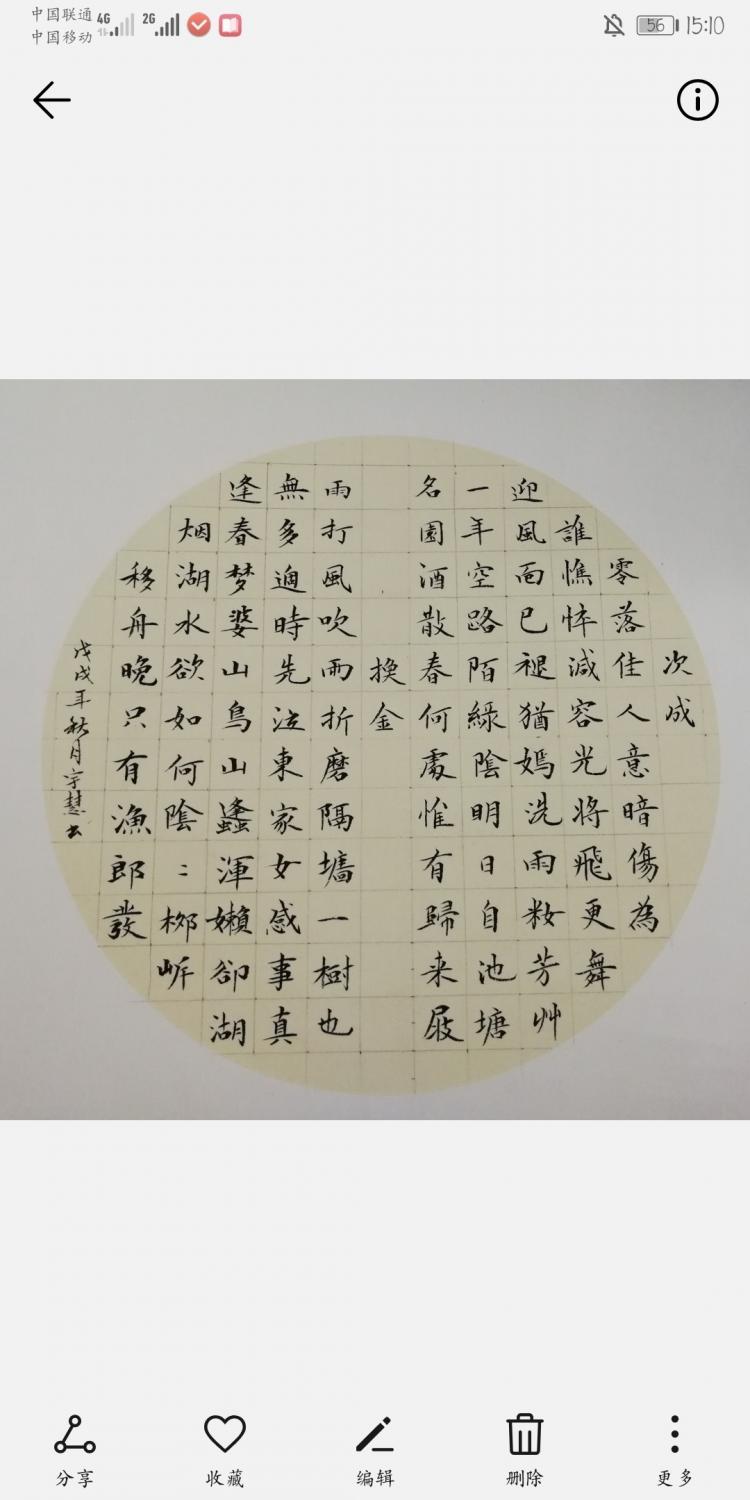 中国联通 4G 2G 56 15:10
中国移动
次成
零落佳人意暗傷為
誰憔悴減容光將飛更舞
迎風面已褪猶嫣洗雨籹芳艸
一年空路陌綠陰明日自池塘
名園酒散春何處惟有歸来屐
換金
雨打風吹雨折磨隔墻一樹也
無多適時先泣東家女感事真
逢春梦婆山鳥山蠭渾嬾卻湖
烟湖水欲如何陰〻桺岓
移舟晚只有漁郎發
戊戌年秋月宇慧书
分享 收藏 编辑 删除 更多